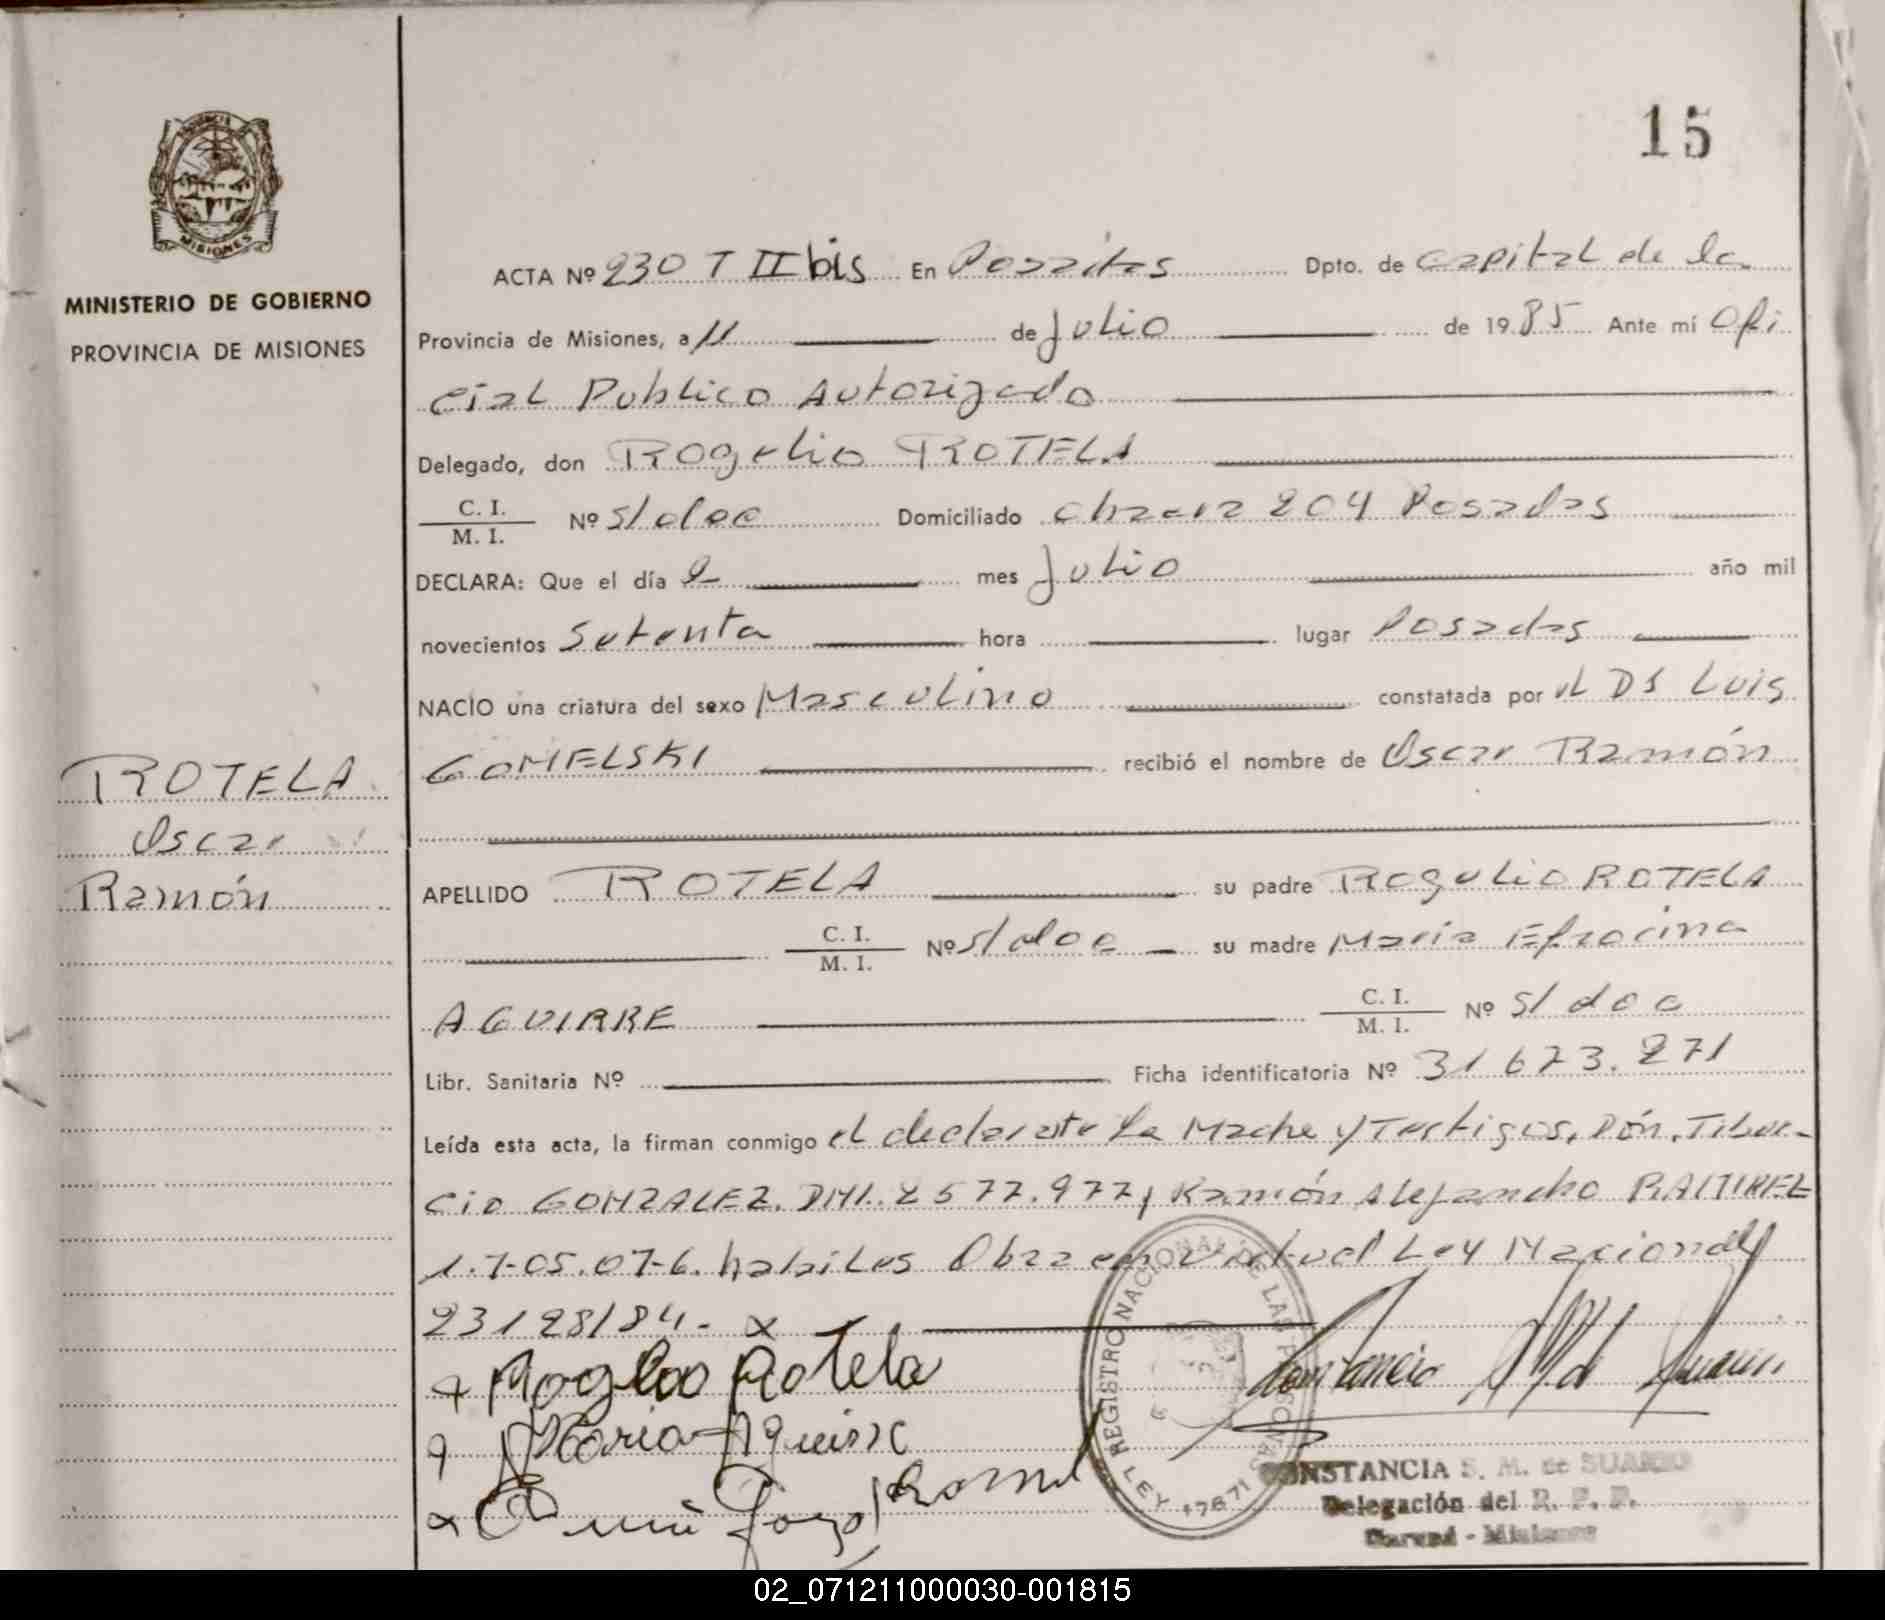 15
PROVINCIA DE
MISIONES
MINISTERIO DE GOBIERNO
PROVINCIA DE MISIONES
ROTELA
Oscar
Ramón
ACTA Nº 230 T II bis En Posadas Dpto. de Capital de la
Provincia de Misiones, a 11 de Julio de 1985 Ante mí Ofi
cial Publico Autorizado
Delegado, don Rogelio ROTELA
C. I.
M. I. Nº s/doc Domiciliado chacra 204 Posadas
DECLARA: Que el día 2 mes Julio año mil
novecientos Setenta hora lugar Posadas
NACIO una criatura del sexo Masculino constatada por el DS Luis
GOMELSKI recibió el nombre de Oscar Ramón
APELLIDO ROTELA su padre Rogelio ROTELA
C. I.
M. I. Nº s/doc su madre Maria Efrocina
AGUIRRE C. I.
M. I. Nº s/doc
Libr. Sanitaria Nº Ficha identificatoria Nº 31673.271
Leída esta acta, la firman conmigo el declarante La Madre y Testigos, Dón, Tibur-
cio GONZALEZ. DMI. 2577.977, Ramón Alejandro RAMIREZ
1.7-05.07-6. habiles Obra en virtud Ley Nacional
23128/84.- x
Rogelio Rotela
Maria Aguirre
REGISTRO NACIONAL DE LAS PERSONAS
LEY 17671
CONSTANCIA S. M. de SUAREZ
Delegación del R. P. P.